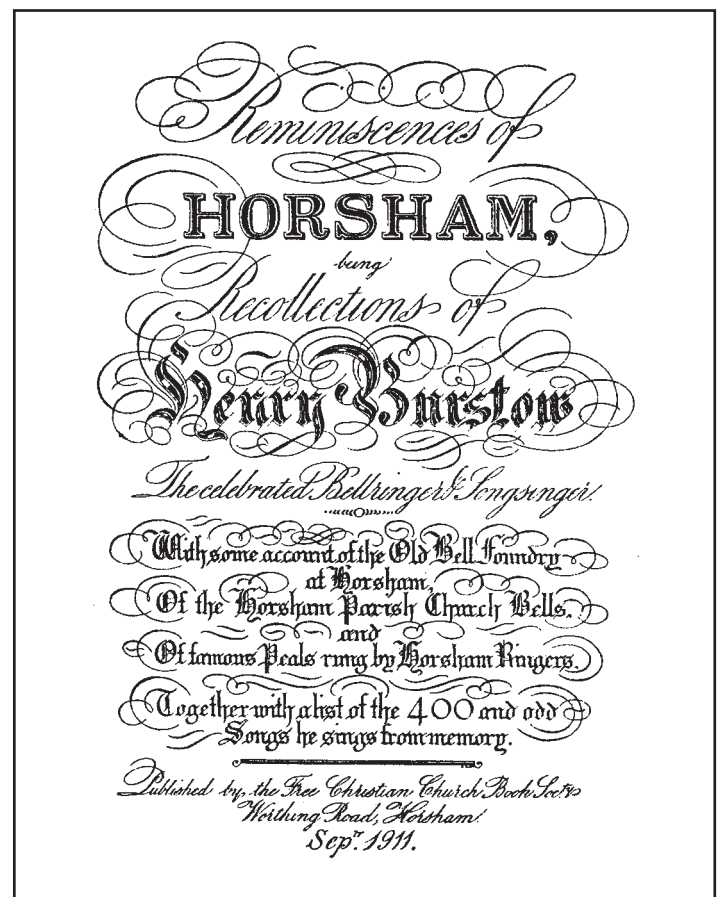 Reminiscences of
HORSHAM,
being
Recollections of
Henry Burstow
The celebrated Bellringer & Songsinger.
With some account of the Old Bell Foundry
at Horsham,
Of the Horsham Parish Church Bells,
and
Of famous Peals rung by Horsham Ringers,
Together with a list of the 400 and odd
Songs he sings from memory.
Published by the Free Christian Church Book Socty
Worthing Road, Horsham.
Sepr. 1911.